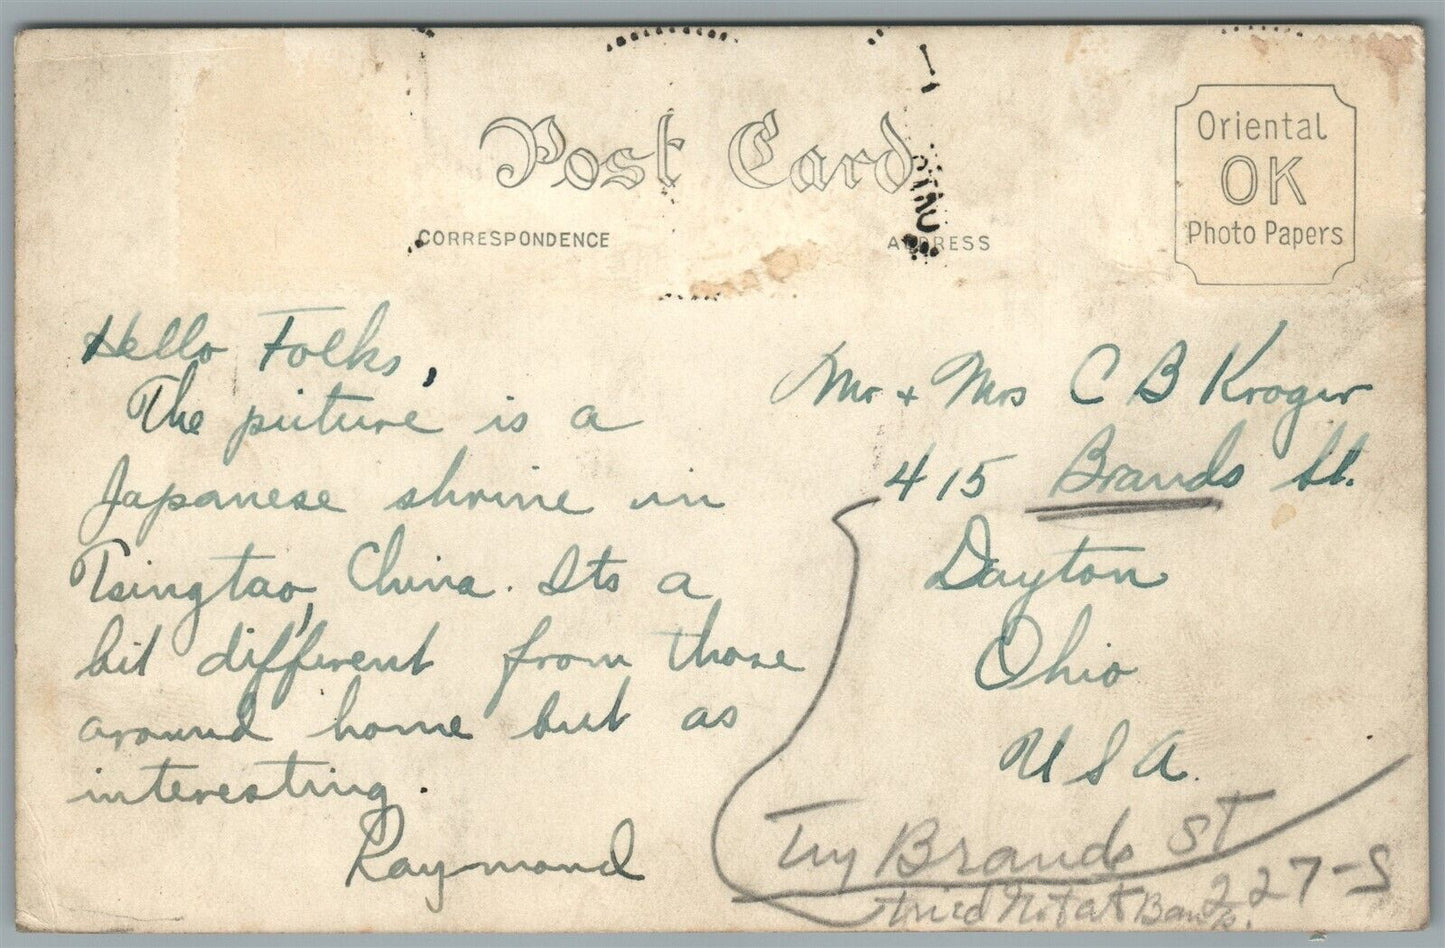 Post Card
CORRESPONDENCE
ADDRESS
Oriental
OK
Photo Papers
Hello Folks,
The picture is a
Japanese shrine in
Tsingtao, China. Its a
bit different from those
around home but as
interesting.
Raymond
Mr + Mrs C B Kroger
415 Brands St.
Dayton
Ohio
USA.
Try Brands St
227-S
tried Not at